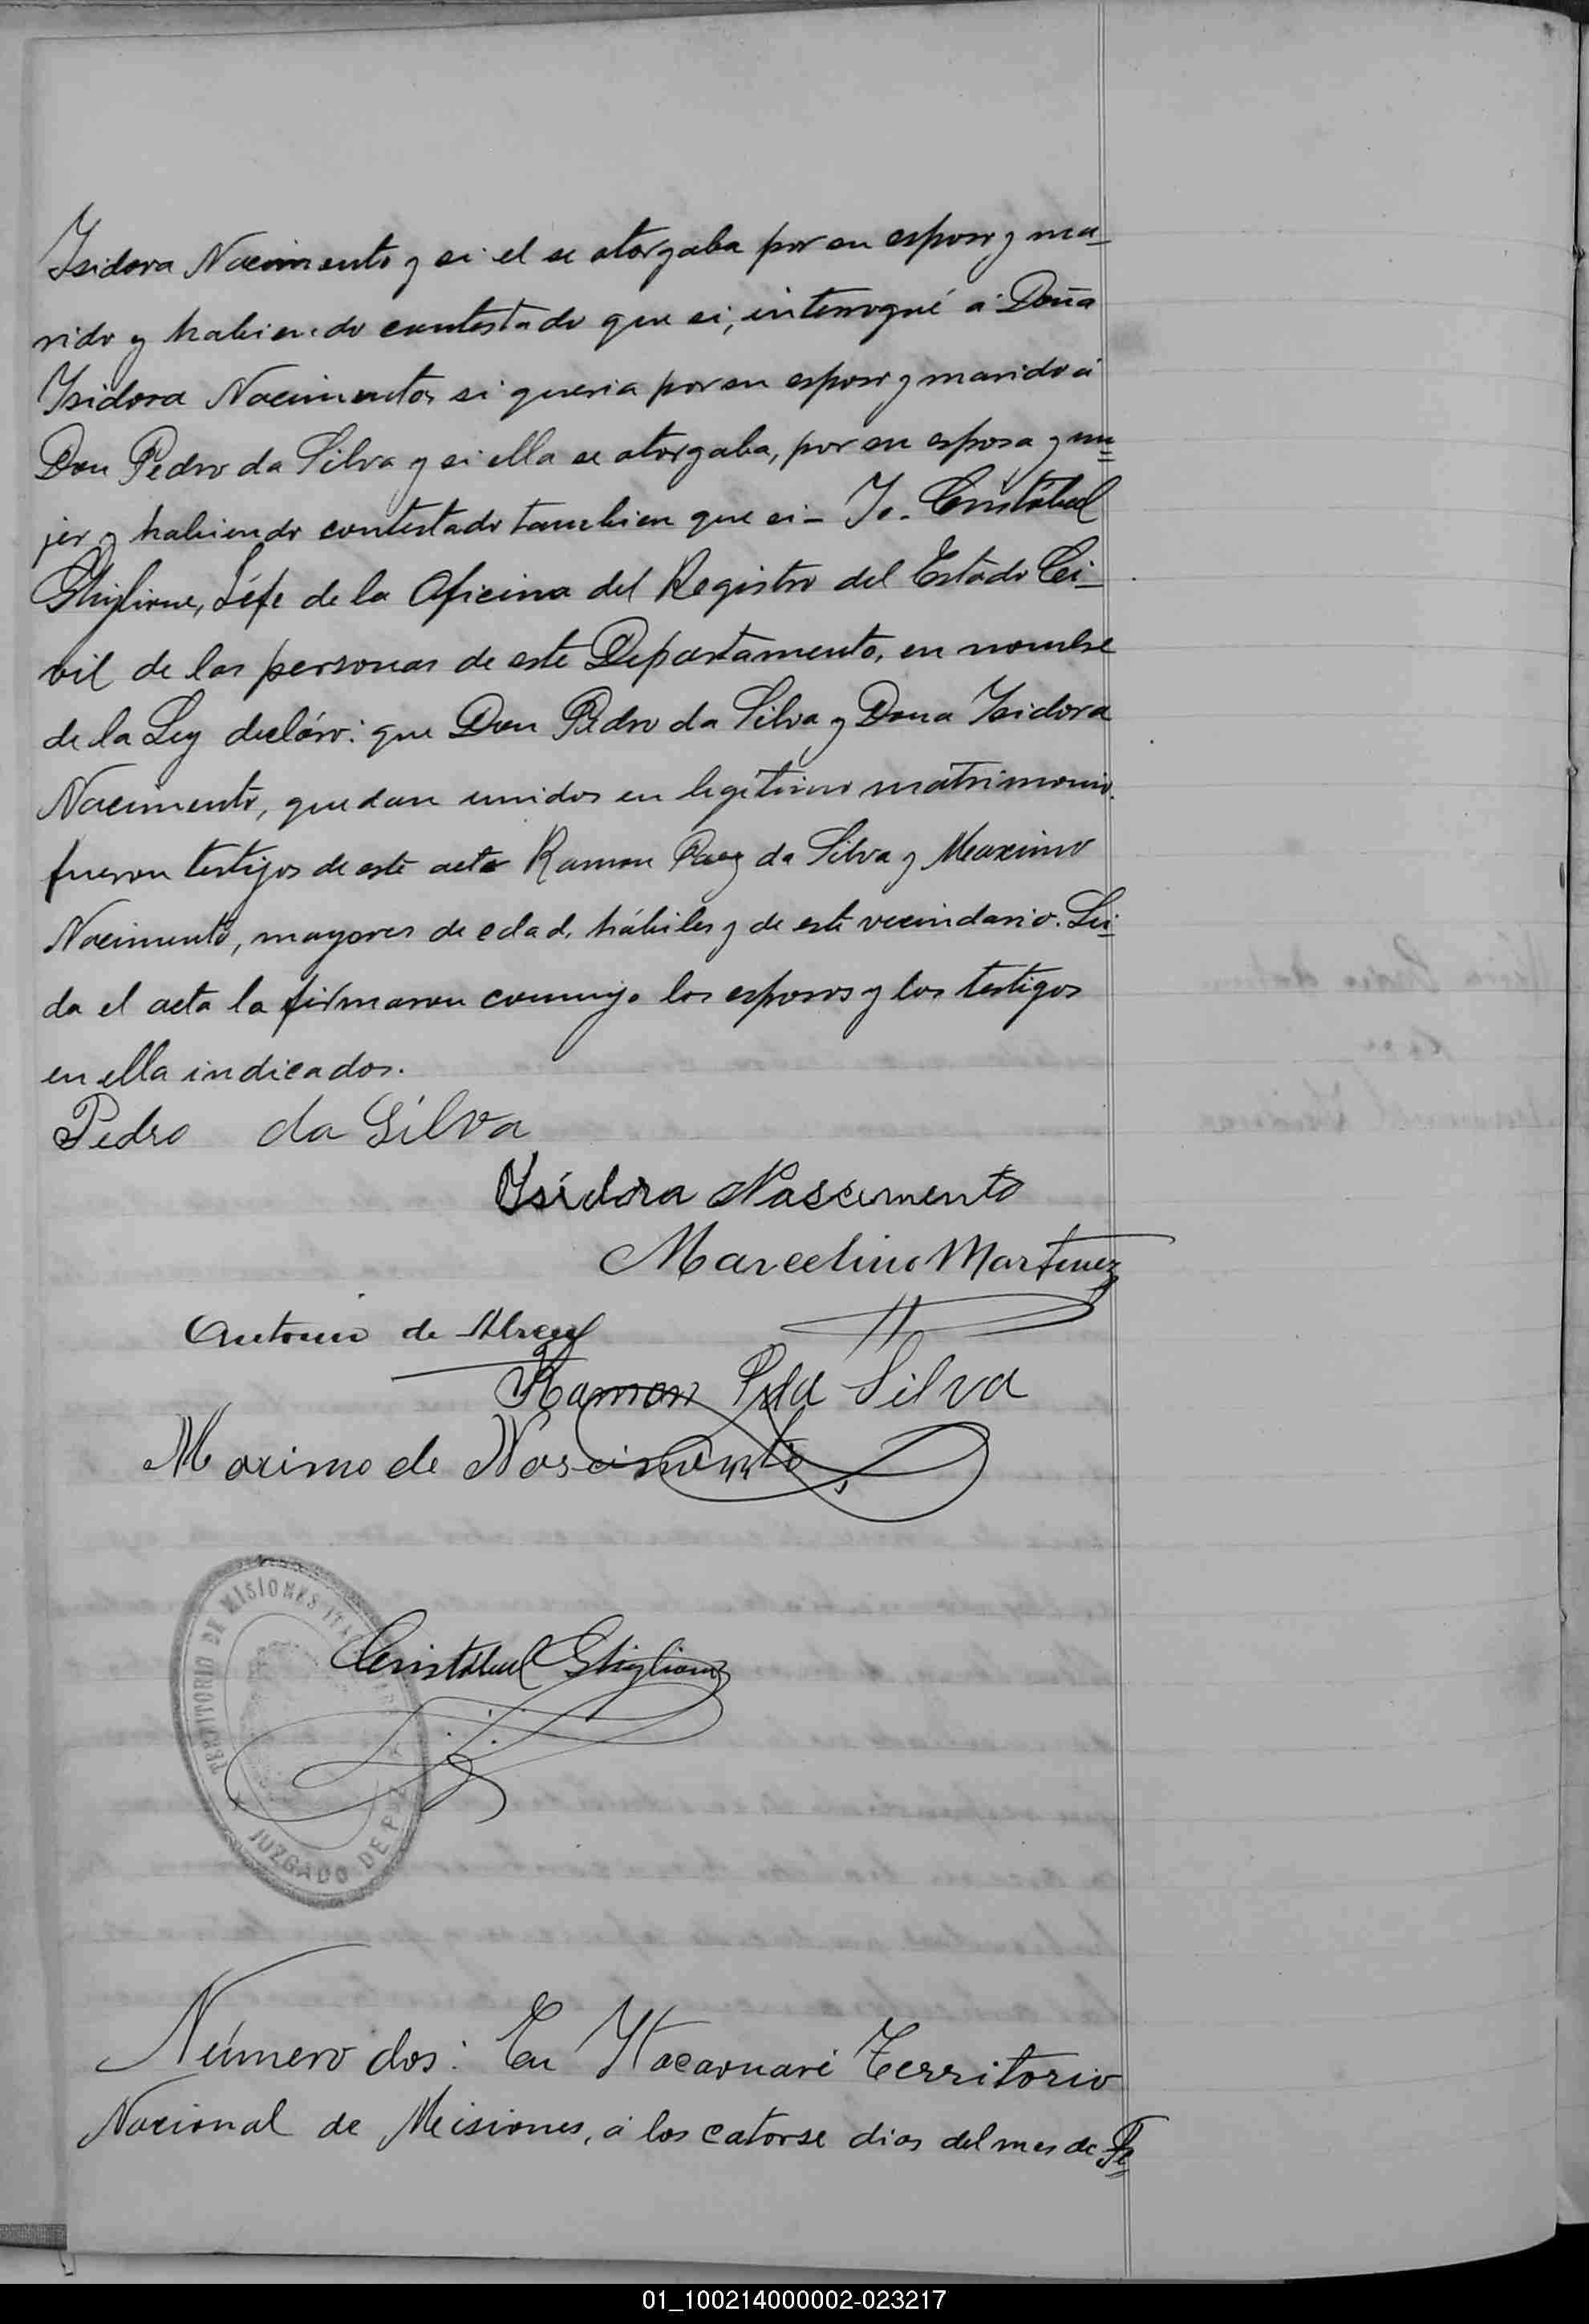 Isidora Nacimento y si el se otorgaba por su esposo y ma-
rido y habiendo contestado que si, interrogué á Doña
Isidora Nacimento, si queria por su esposo y marido á
Don Pedro da Silva y si ella se otorgaba, por su esposa y mu=
jer y habiendo contestado tambien que si - Yo. Cristóbal
Ghiglione, Jéfe de la Oficina del Registro del Estado Ci-
vil de las personas de este Departamento, en nombre
de la Ley decláro: que Don Pedro da Silva y Dona Isidora
Nacimento, quedan unidos en legítimo matrimonio.
fueron testigos de este acto Ramon Paez da Silva y Maximo
Nacimento, mayores de edad, hábiles y de este vecindario. Lei-
da el acta la firmaron conmigo los esposos y los testigos
en ella indicados.
Pedro da Silva
Isidora Nascimento
Marcelino Martinez
Antonio de Abreu
Ramon P. da Silva
Maximo de Nascimento
TERRITORIO DE MISIONES
Cristóbal Ghiglione
JUZGADO DE PAZ
Número dos: En Itacaruaré Territorio
Nacional de Misiones, á los catorse dias del mes de Fe=
01_100214000002-023217